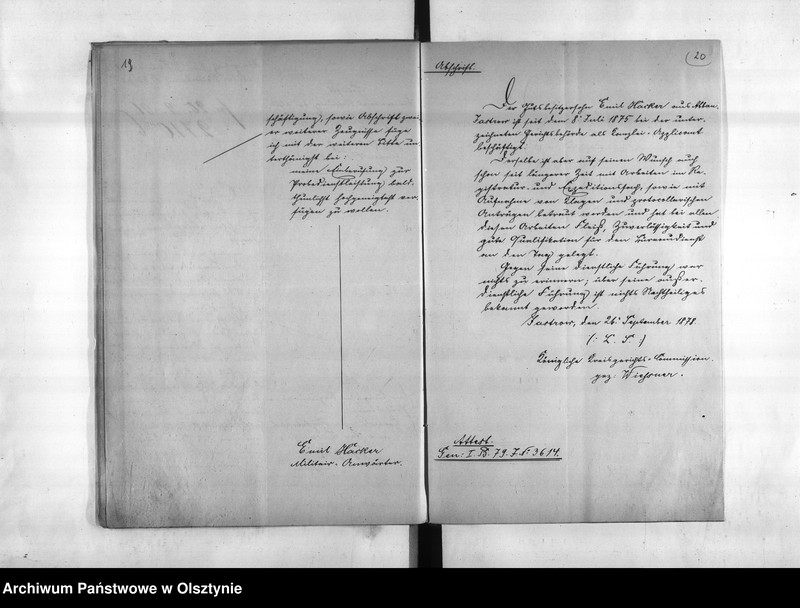 19
schäftigung, sowie Abschrift zwei
er weiterer Zeugnisse füge
ich mit der weiteren Bitte un
terthänigst bei:
meine Einberufung zur
Probedienstleistung bald
thunlichst hochgeneigtest ver
fügen zu wollen.
Emil Häcker
Militair-Anwärter.
20
Abschrift.
Der Gutsbesitzersohn Emil Hacker aus Alten
Jastrow ist seit dem 8. Juli 1875 bei der unter
zeichneten Gerichtsbehörde als Kanzlei-Applicant
beschäftigt.
Derselbe ist aber auf seinen Wunsch auch
schon seit längerer Zeit mit Arbeiten im Re
gistratur- und Expeditionsfach, sowie mit
Aufnahme von Klagen und protocollarischen
Anträgen betraut worden und hat bei allen
diesen Arbeiten Fleiß, Zuverlässigkeit und
gute Qualifikation für den Bureaudienst
an den Tag gelegt.
Gegen seine dienstliche Führung war
nichts zu erinnern; über seine außer
dienstliche Führung ist nichts Nachtheiliges
bekannt geworden.
Jastrow, den 26. September 1878.
(: L. S. :)
Königliche Kreisgerichts-Commission.
gez:
Attest.
Gen: I 79. J. N. 3614.
Archiwum Państwowe w Olsztynie